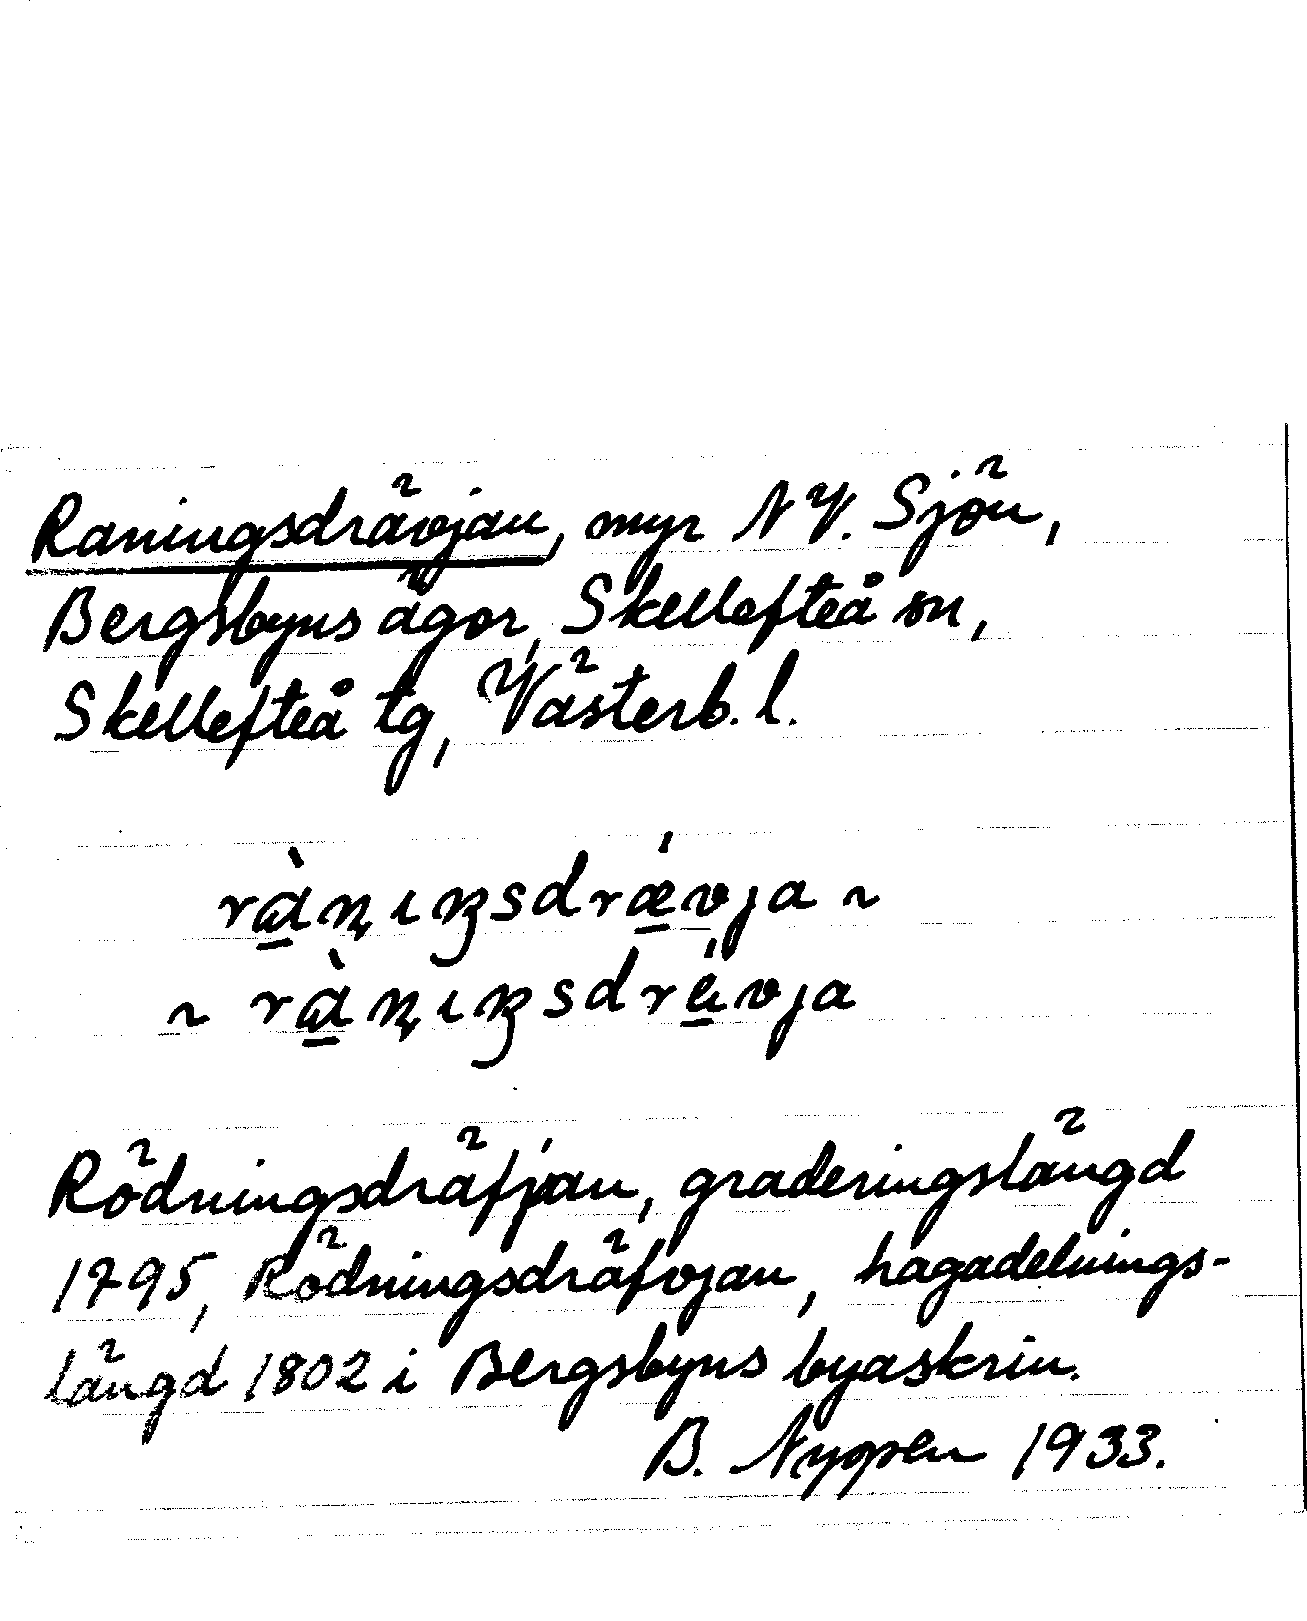 Raningsdrävjan, myr NV. Sjön,
Bergsbyns ägor, Skellefteå sn,
Skellefteå tg, Västerb. l.
rὰ̱n̨ɩŋsdrǽ̱vja ~
~ rὰ̱n̨ɩŋsdrá̱vja
Rödningsdräfjan, graderingslängd
1795, Rödningsdräfvjan, hagadelnings-
längd 1802 i Bergsbyns byaskrin.
B. 1933.